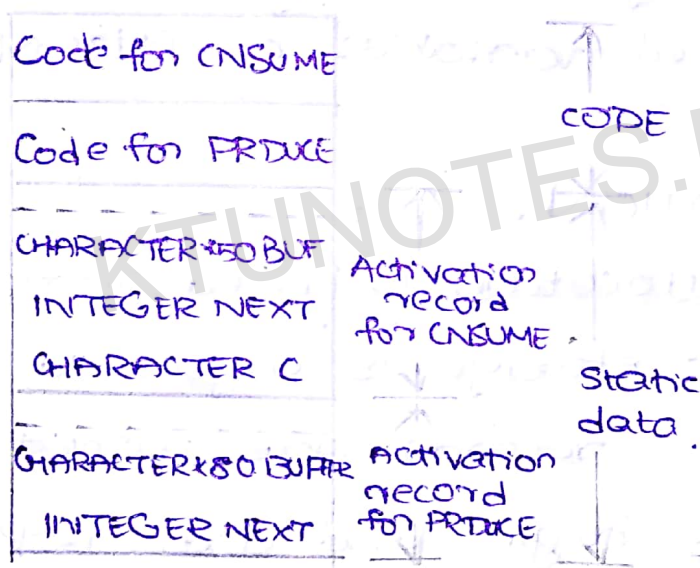 Code for CNSUME
CODE
Code for PRDUCE
KTUNOTES.
CHARACTER*50 BUF
INTEGER NEXT
CHARACTER C
Activation
record
for CNSUME.
Static
data.
CHARACTER*80 BUFFER
INTEGER NEXT
Activation
record
for PRDUCE